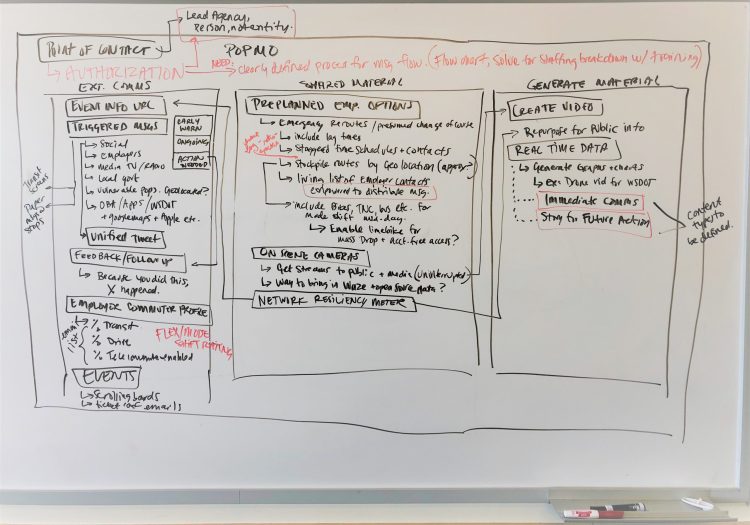 Lead Agency,
Person, not entity.
POINT OF CONTACT
POPMO
AUTHORIZATION
NEED:
clearly defined process for msg flow. (Flow chart, solve for staffing breakdown w/ training)
EXT. COMMS
EVENT INFO URL
TRIGGERED MSGS
EARLY
WARN
ONGOING
ACTION
NEEDED
Social
Employers
Media TV/RADIO
Local govt
Vulnerable pops. Geolocated?
DBA/APPS/WSDOT
+ googlemaps + Apple etc.
Transit
Screens
Paper
stops
UNIFIED TWEET
FEEDBACK/FOLLOWUP
Because you did this,
X happened.
EMPLOYER COMMUTER PROFILE
email
list
% Transit
% Drive
% Telecommute enabled
FLEX/MODE
SHIFT RATING
EVENTS
Scrolling boards
ticket emails
SHARED MATERIAL
PREPLANNED EMP. OPTIONS
Emergency Reroutes/presumed change of course
include lag times
Staggered time schedules + contacts
Stockpile routes by Geolocation (approx?)
living list of Employer contacts
empowered to distribute msg.
include Bikes, TNC, WS etc. for
mode shift mid-day.
Enable limebike for
mass Drop + Acct.-free access?
ON SCENE CAMERAS
Get streams to public + media (uninterrupted)
Way to bring in Waze + open source data?
NETWORK RESILIENCY METER
GENERATE MATERIAL
CREATE VIDEO
Repurpose for Public info
REAL TIME DATA
Generate Graphs + charts
Ex: Drone vid for WSDOT
Immediate Comms
Story for Future Action
Content
types to
be defined.